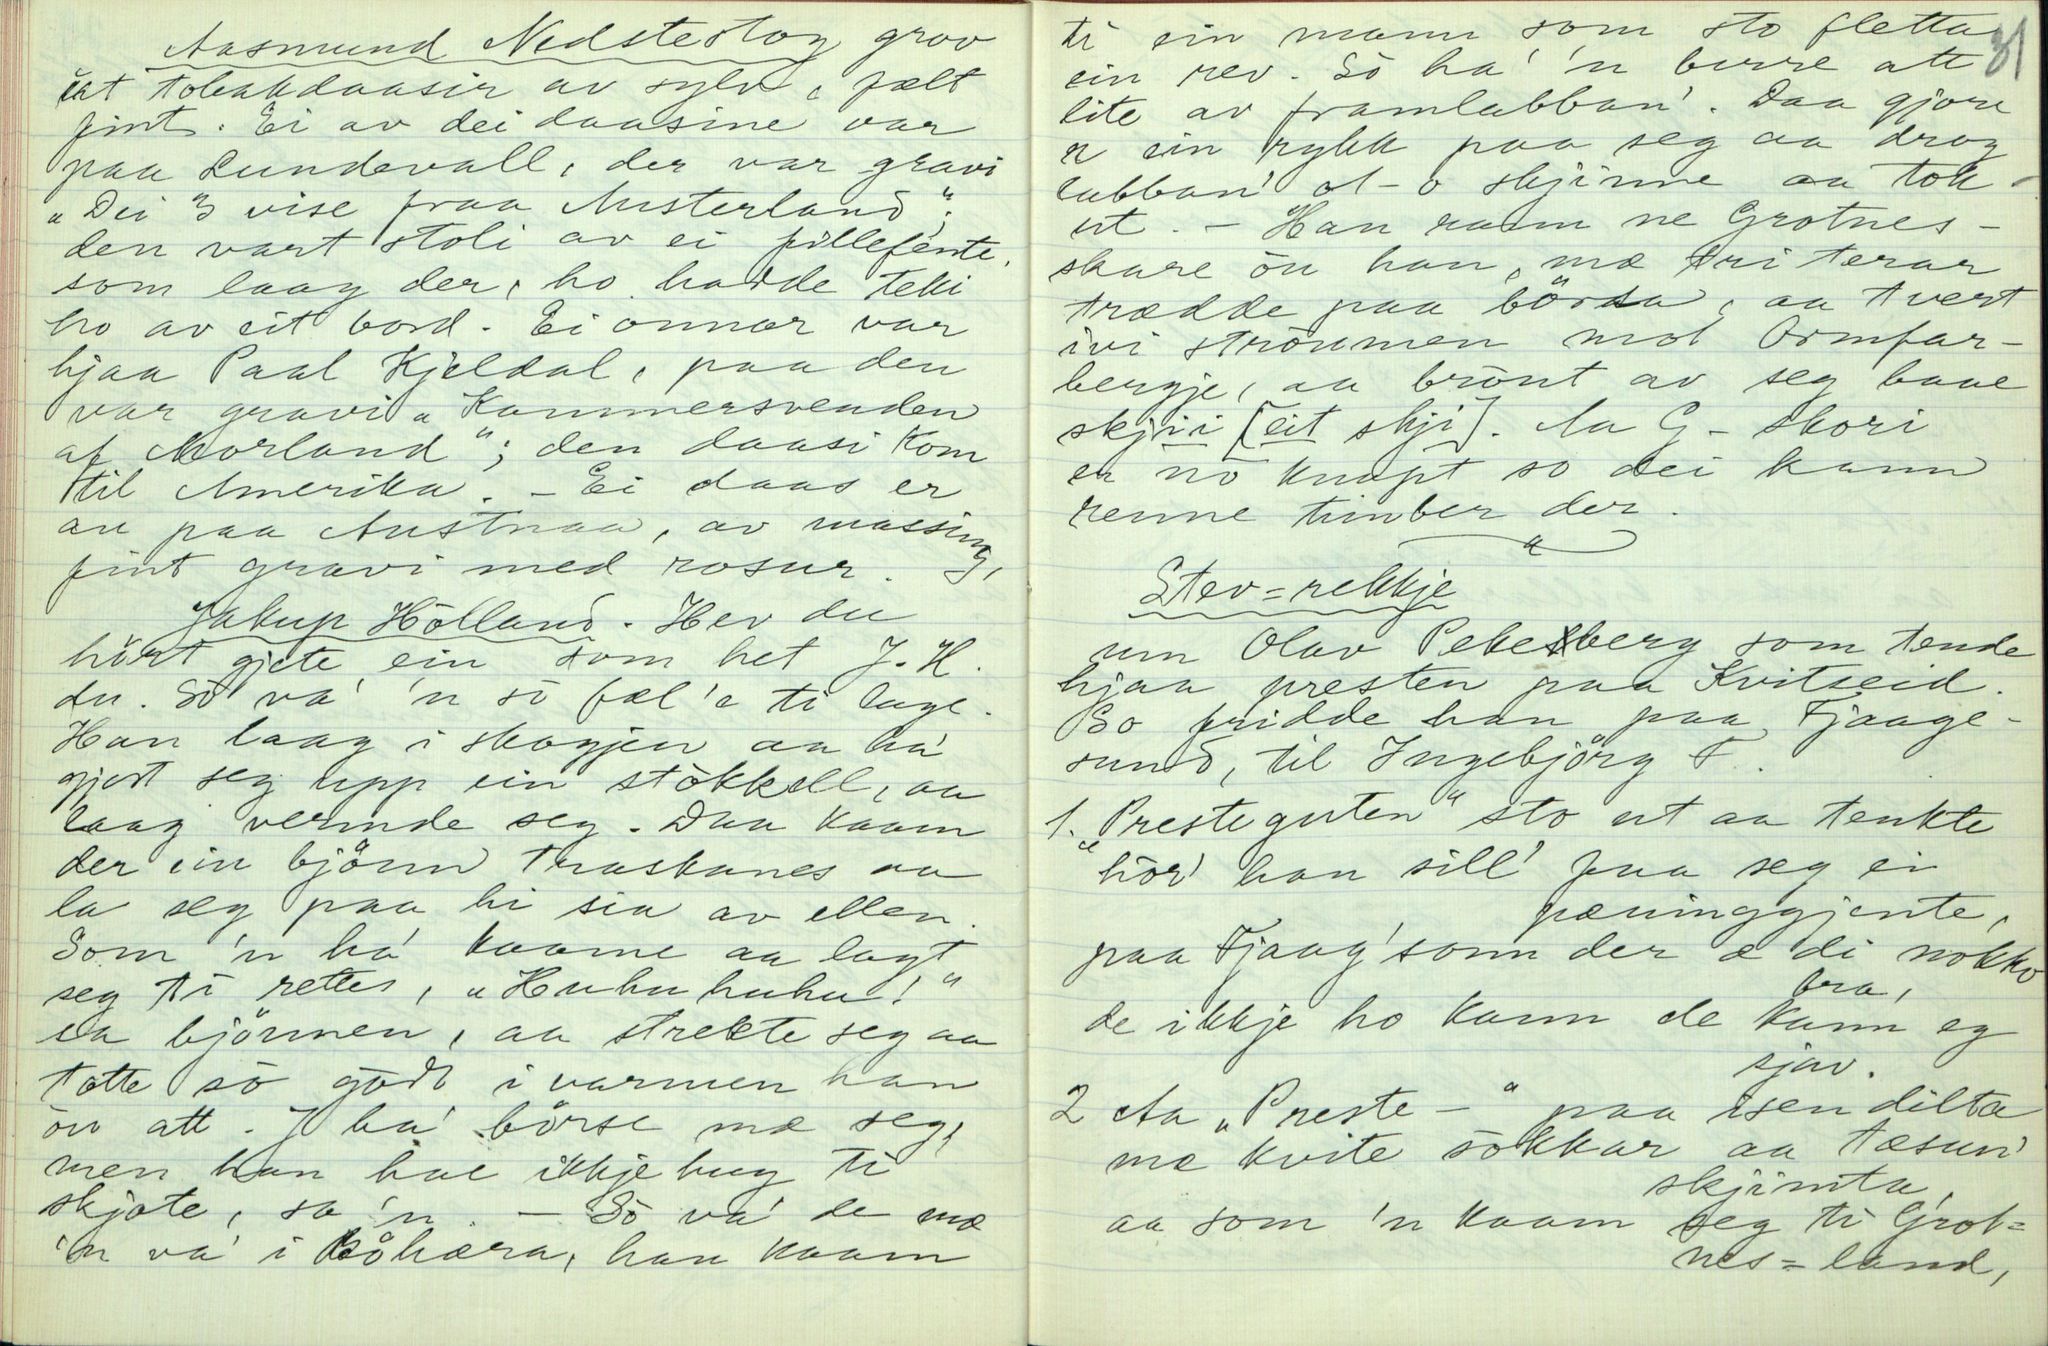 Aasmund Nedstestog grov
ut tobakdaasir av sylv, fælt
fint. Ei av dei daasine var
paa Lundevall, der var gravi
„Dei 3 vise fraa Austerland“;
den vart stoli av ei fillefente,
som laag der, ho hadde teki
ho av eit bord. Ei onnor var
hjaa Paal Kjeldal, paa den
var gravi „Kammersvenden
af Morland“; den daasi kom
til Amerika. – Ei daas er
au paa Austnaa, av massing,
fint gravi med rosur.
Jakup Hölland. Hev du
hört gjete ein som het J. H.
du. Sö va' 'n sö fæl'e ti lage.
Han laag i skogjen aa ha'
gjort seg upp ein stökkell, aa
laag verinde seg. Daa kaam
der ein björn traskanes aa
la seg paa hi sia av ellen.
Som 'n ha' kaame aa lagt
seg ti rettes, „Huhu huhu!“
sa björnen, aa strekte seg aa
totte sö godt i varmen han
öu att. J ha' börse mæ seg,
men han hae ikkje hug ti
skjote, sa 'n. – Sö va' de mæ
'n va' i Böhæra, han kaam
31
ti ein mann som sto fletta
ein rev. Sö ha' 'n berre att
lite av framlabban'. Daa gjore
n ein rykk paa seg aa drog
labban' ot- o skjinne aa tok
ut. – Han rann ne Grotnes-
skare öu han, mæ tri terar
trædde paa börsa, aa tvert
ivi ströumen mot Ormfar-
bergje, aa brönt av seg baae
skjii [eit skji]. Aa G- skori
er nö knapt so dei kann
renne timber der.
Stev=rekkje
um Olav Pekeberg som tende
hjaa presten paa Kvitseid.
So fridde han paa Fjaage-
sund, til Ingebjörg F.
1. „Presteguten“ sto ut aa tenkte
hör' han sill' paa seg ei
pæninggjente,
paa Fjaag'sonn der æ di nokko
bra,
de ikkje ho kann de kann eg
sjav.
2 Aa „Preste-“ paa isen dilta
mæ kvite sökkar aa tæsun'
skjimta,
aa som 'n kaam seg ti Grot=
nes=land,